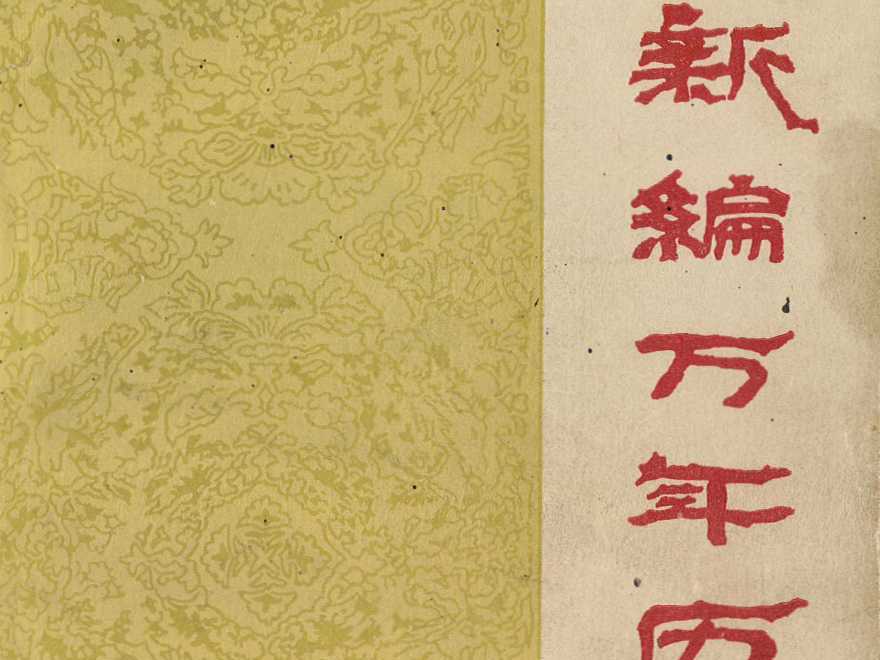 新編万年历